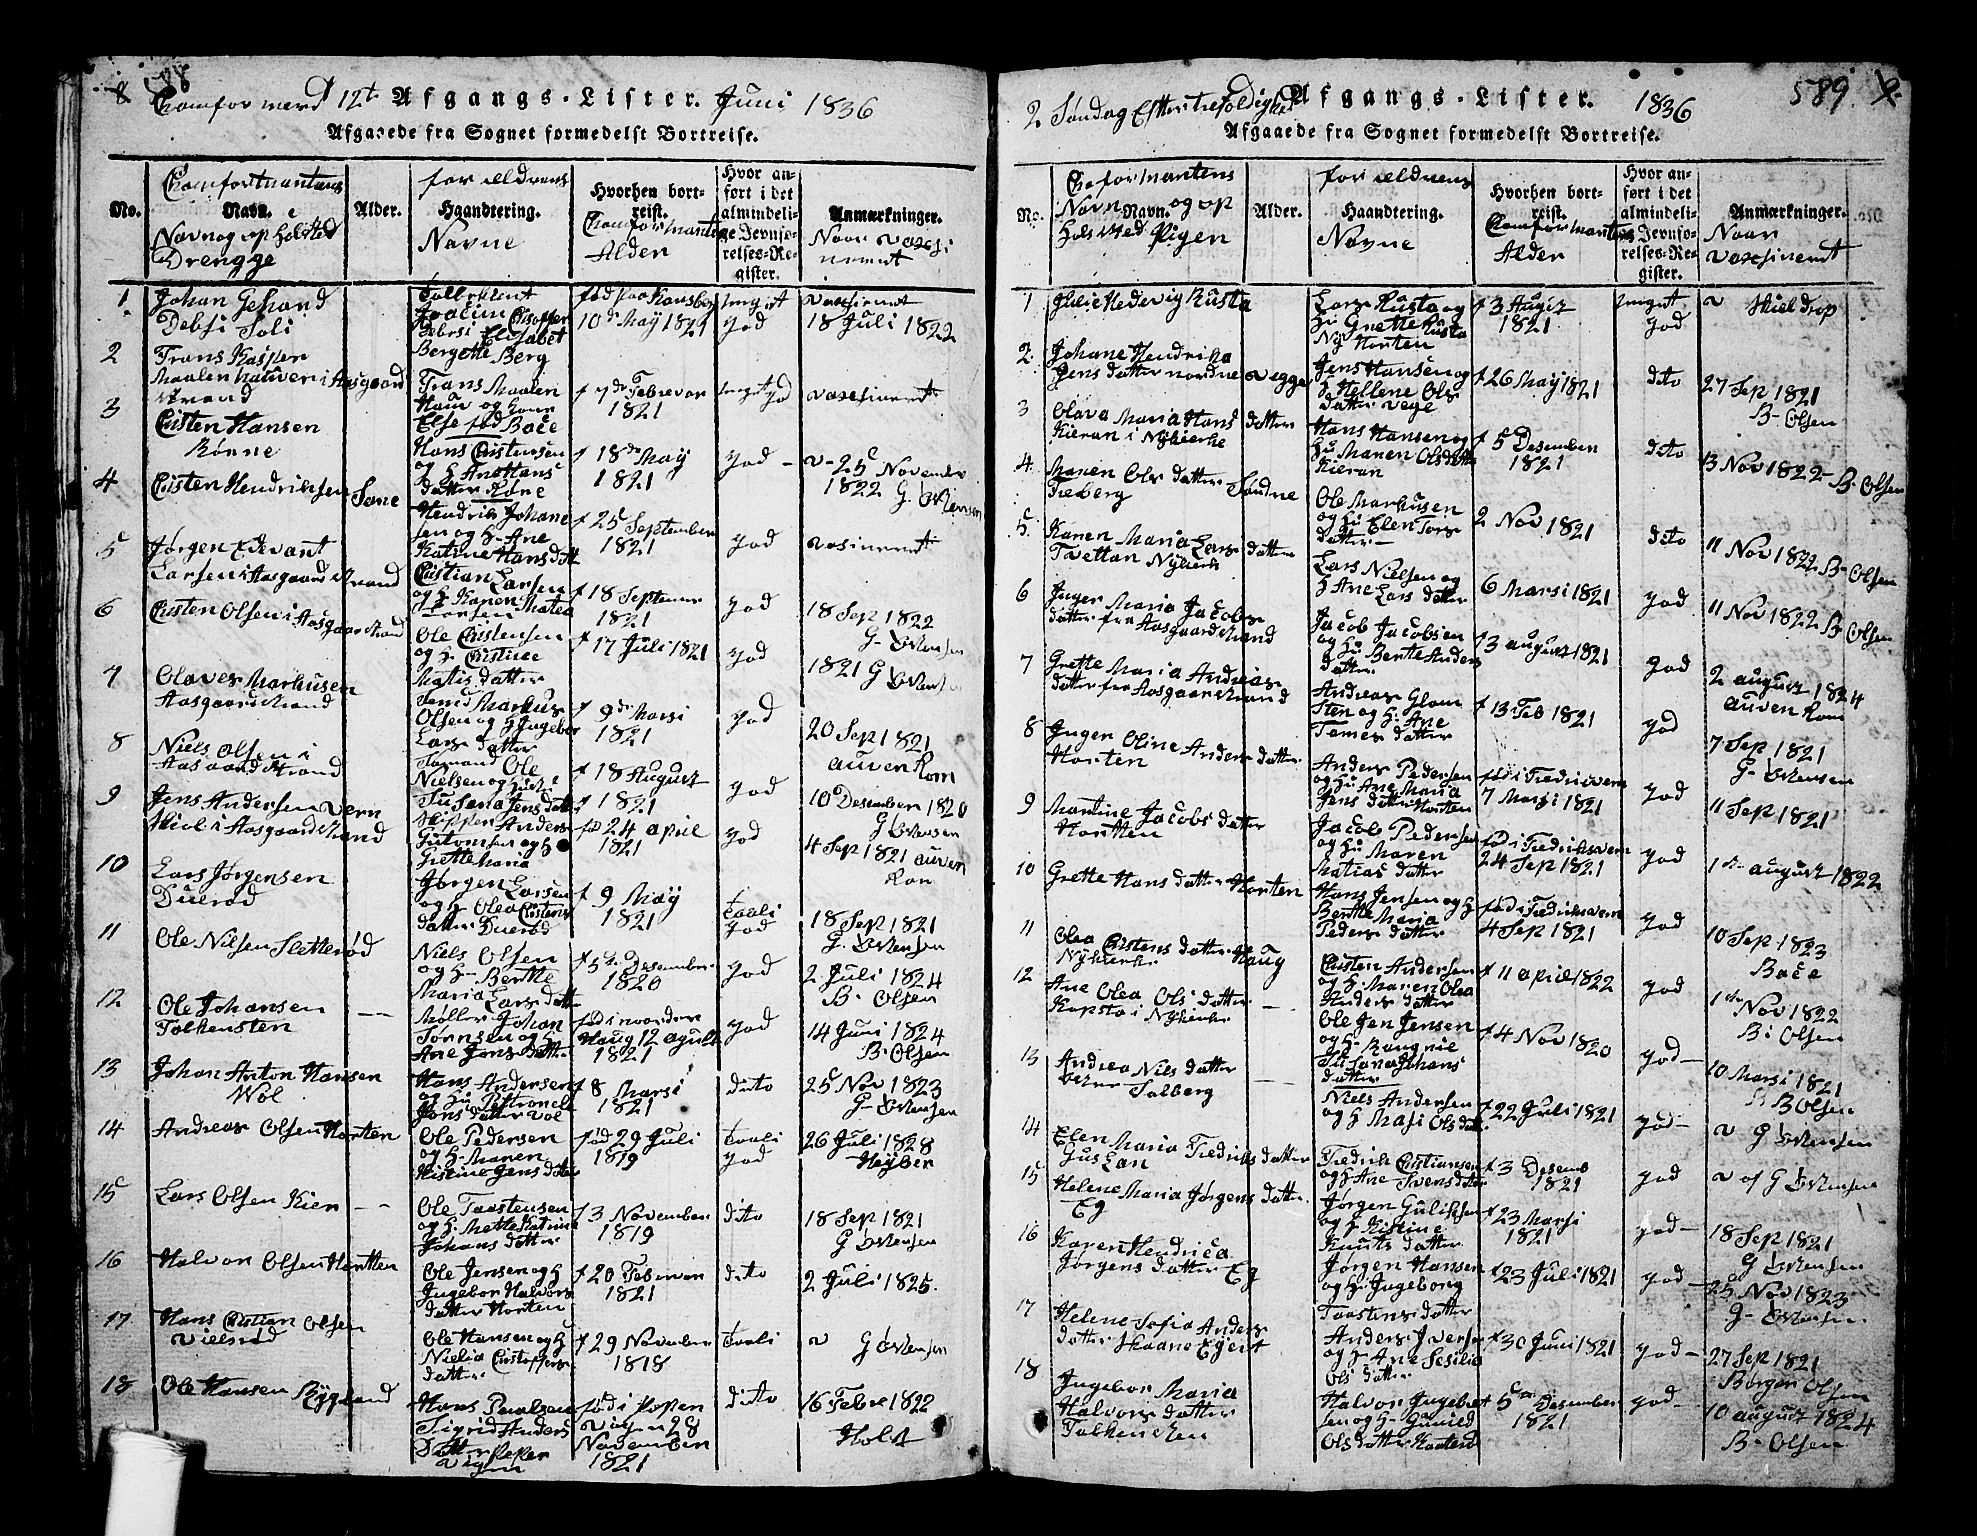 588
Chomformerd 12te Afgangs-Lister. Juni 1836
Afgaaede fra Sognet formedelst Bortreise.
No.
Chomformantens
Navn.
Navn og op holsted
Drengge
Alder.
for ældrens
Haandtering.
Navne
Hvorhen bort-
reist.
Chomformantens
Alder
Hvor an-
ført i det
almindeli-
ge Jevnfø-
relses-Re-
gister.
Anmærkninger.
Naar vaxsi
neret
1 Johan Gerhard
Tolbeklient
Joacim Chrisoffer
Elisabet
Bergette Berg
fød paa Konsberg
10de Maÿ 1821
meget
god
vaxsineret
18 Juli 1822
2 Frans Kasper
Maalen Hauver i Aasgaard
strand
Frans Maalen
Hauv og hone
Else fød Boee
f 7de Febrevar
1821
meget god
vaxsineret
3 Cristen Hansen
Rønne
Hans Cristensen
og H Ane Hans
datter Røne
f 18de Maÿ
1821
god
v- 25 November
1822 G. Østensen
4 Cristen Hendriksen Søne
Hendrik Johane
sen og H- Ane
Katrine Hans datt
f 25 September
1821
god
vasineret
5 Jørgen Edevant
Larsen i Aasgaard strand
Cristian Larsen
og H Karen Matea
Larsen
f 18 September
1821
god
18 Sep 1822
G- Østensen
6 Cristen Olsen i Aasgaardstrand
Ole Cristensen
og H. Cristine
Matis datter
f 17 Juli 1821
god
1821 G Østensen
7 Olaves Markusen
Aasgaardstrand
Markus
Olsen og H Ingebor
Lars datter
f 9de Marsi
1821
god
20 Sep 1821
auven Rom
8 Niels Olsen i
Aasgaardstrand
Ole
Nielsen og
Susana Jens datt
f 18 August
1821
god
10 Desember 1820
G Østensen
9 Jens Andersen vern
Kiel i Aasgaardstrand
Skipper Anders
Gutomsen og H
Grette Maria
fød 24 april
1821
god
4 Sep 1821 auven
Ron
10 Lars Jørgensen
Duerød
Jørgen Larsen
og H. Olea Cristens
datter Duerød
f 9 Maÿ
1821
taali
god
18 Sep 1821
G. Østensen
11 Ole Nilsen Sletterød
Niels Olsen
og H- Berthe
Maria Lars datter
f 5te Desember
1820
god
2 Juli 1824
B- Olsen
12 Ole Johansen
Falkensten
Møller Johan
Tørnsen og H
Ane Jens Datter
fød i noordre
Haug 12 agust
1821
god
14 Juni 1824
B. Olsen
13 Johan Anton Hansen
Wol
Hans Andersen
og Hu Petronele
Jons datter vol
f 8 Marsi
1821
dito
25 Nov 1823
G- Østensen
14 Andreas Olsen Horten
Ole Pedersen
og H- Maren
Kistine Jens datter
fød 29 Juli
1819
taali
god
26 Juli 1828
Heyber
15 Lars Olsen Kier
Ole Taastensen
og H. Mette Katrine
Johans datter
f 3 November
1819
dito
18 Sep 1821
G Østensen
16 Halvor Olsen Hortten
Ole Jensen og H
Ingebor Halvors
datter Horten
f 20 Febervar
1821
dito
2 Juli 1825.
17 Hans Cristian Olsen
Vielsrød
Ole Hansen og H
Nielia Cristoffers
datter
f 29 November
1818
taali
v G Østensen
18 Ole Hansen Bÿgland
Hans Paulsen
Sigrid Anders
datter Peper
Vigen
fød i Peper
vigen 28
November
1821
dito
16 Febr 1822
Holst
2 Søndag Efter trefoldighed Afgangs-Lister. 1836 589
Afgaaede fra Sognet formedelst Bortreise.
No.
Choformantens
Navn og op
Navn.
Hols sted Pigen
Alder.
for ældrens
Haandtering.
Navne
Hvorhen bort-
reist.
Chomformantens
Alder
Hvor an-
ført i det
almindeli-
ge Jevnfø-
relses-Re-
gister.
Anmærkninger.
Naar
vaxsineret
1 Julie Hedevig Rusta
Lars Rusta og
Hu Grette Rusta
Ny Horten
f 3 August
1821
meget
god
v Hieldrop
2. Johane Hendrika
Jens datter nordre vegge
Jens Hansen og
H Hellene Ols
datter vege
f 26 Maÿ 1821
dito
27 Sep 1821
B- Olsen
3 Olava Maria Hans datter
Kieran i Nÿkierke
Hans Hansen og
Hu Maren Ols datter
Kieran
f 5 Desember
1821
dito
13 Nov 1822- B. Olsen
4. Maren Ols datter Søndre
Freberg
Ole Markusen
og Hu Elen Tors
datter
2 Nov 1821
dito
11 Nov 1822 B- Olsen
5. Karen Maria Lars datter
Tvettan Nÿkierk
Lars Nielsen og
H Ane Lars datter
6 Marsi 1821
god
11 Nov 1822 B Olsen
6 Inger Maria Jacobs
datter fra Aasgaardstrand
Jacob Jacobsen
og Hu Berte Anders
datter
f 3 august 1821
god
2 august 1824
auven Rom
7 Grette Maria Andreas
datter fra Aasgaarstrand
Andreas Glom
sten og H. Ane
Tomes datter
f 13 Feb 1821
god
7 Sep 1821
G- Østensen
8 Inger Oline Anders datter
Horten
Anders Pedersen
og Hu Ane Maria
Jens datter Horten
fød i Fredricsvern
7 Marsi 1821
god
11 Sep 1821
9 Martine Jacobs datter
Hortten
Jacob Pedersen
og Hu Maren
Matias datter
fød i Fredriksvern
24 Sep 1821
god
1ste august 1822
10 Grette Hans datter Horten
Hans Jensen og H
Berthe Maria
Peders datter
fød i Fredriksvern
4 Sep 1821
god
10 Sep 1823
Boee
11 Olea Cristens datter Haug
Nÿkierke
Cristen Andersen
og H. Maren Olea
Anders datter
f 11 april 1822
god
1ste Nov 1822
B. Olsen
12 Ane Olea Ols datter
Kopstad i Nÿkierke
Ole Jen Jensen
og H- Raugnil
Susana Johans
datter
f 4 Nov 1820
god-
10 Marsi 1821
B Olsen
13 Andrea Niels datter
Solberg
Niels Andersen
og H Masi Ols datt.
f 22 Juli 1821
god-
v G Østensen
14 Elen Maria Fredriks datter
Gus Lan
Fredrik Cristiansen
og H Ane Svens datter
f 3 Desemb
1821
god
v af G Østensen
15 Helene Maria Jørgens datter
Eg
Jørgen Guliksen
og H Kistine
Knuts datter
f 23 Marsi
1821
god-
18 Sep 1821
G Østensen
16 Karen Hendrica
Jørgens datter Eg
Jørgen Hansen
og H. Ingeborg
Taastens datter
f 23 Juli 1821
god
25 Nov 1823
G- Østensen
17 Helene Sofia Anders
datter Skaane Egert
Anders Iversen
og H- Ane Sesilia
Ols datter
f 30 Juni 1821
god-
27 Sep 1821
Børger Olsen
18 Ingebor Maria
Halvors datter
Falkensten
Halvor Ingebret
sen og H- Gunild
Ols datter
5te Desember
1821
god-
10 august 1824
B- Olsen